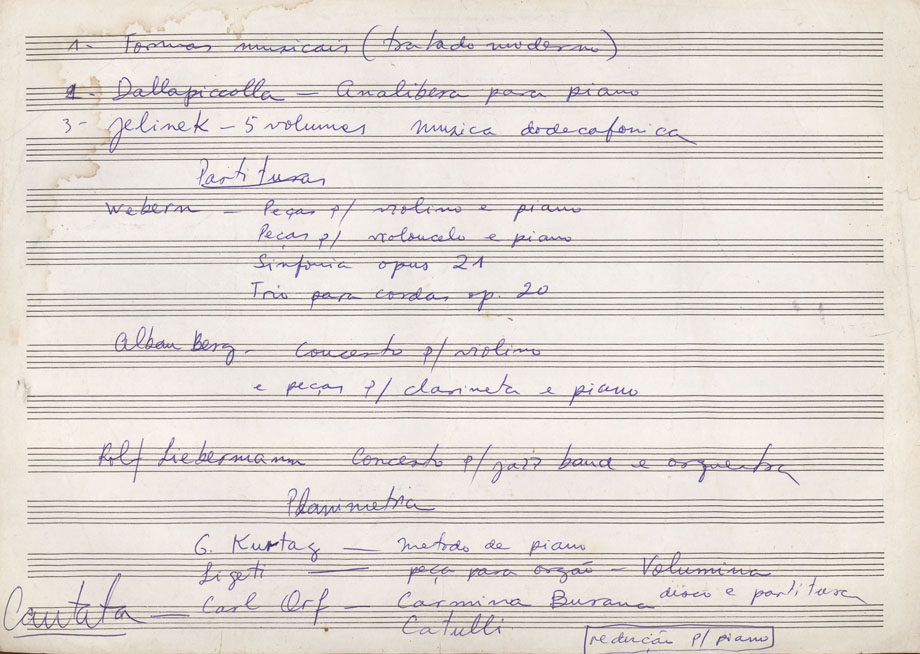 1- Formas musicais (tratado moderno)
2- Dallapiccolla — Analibera para piano
3- Jelinek — 5 volumes musica dodecafonica
Partituras
Webern — Peças p/ violino e piano
Peças p/ violoncelo e piano
Sinfonia opus 21
Trio para cordas op. 20
Alban Berg - Concerto p/ violino
e peças p/ clarineta e piano
Rolf Liebermann Concerto p/ jazz band e orquestra
Planimetria
G. Kurtag — metodo de piano
Ligeti — peça para orgão — Volumina
disco e partitura
Cantata — Carl Orf — Carmina Burana
Catulli
redução p/ piano